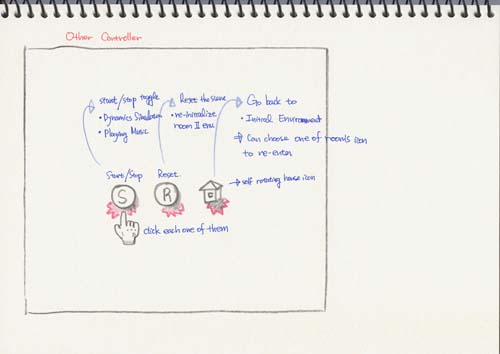 Other Controller
start/stop toggle
• Dynamics Simulation
• Playing Music
Reset the scene
• re-initialize
room II env
Go back to
• Initial Environment
→ Can choose one of room's icon
to re-enter
Start/Stop
Reset
→ self rotating house icon
S
R
click each one of them